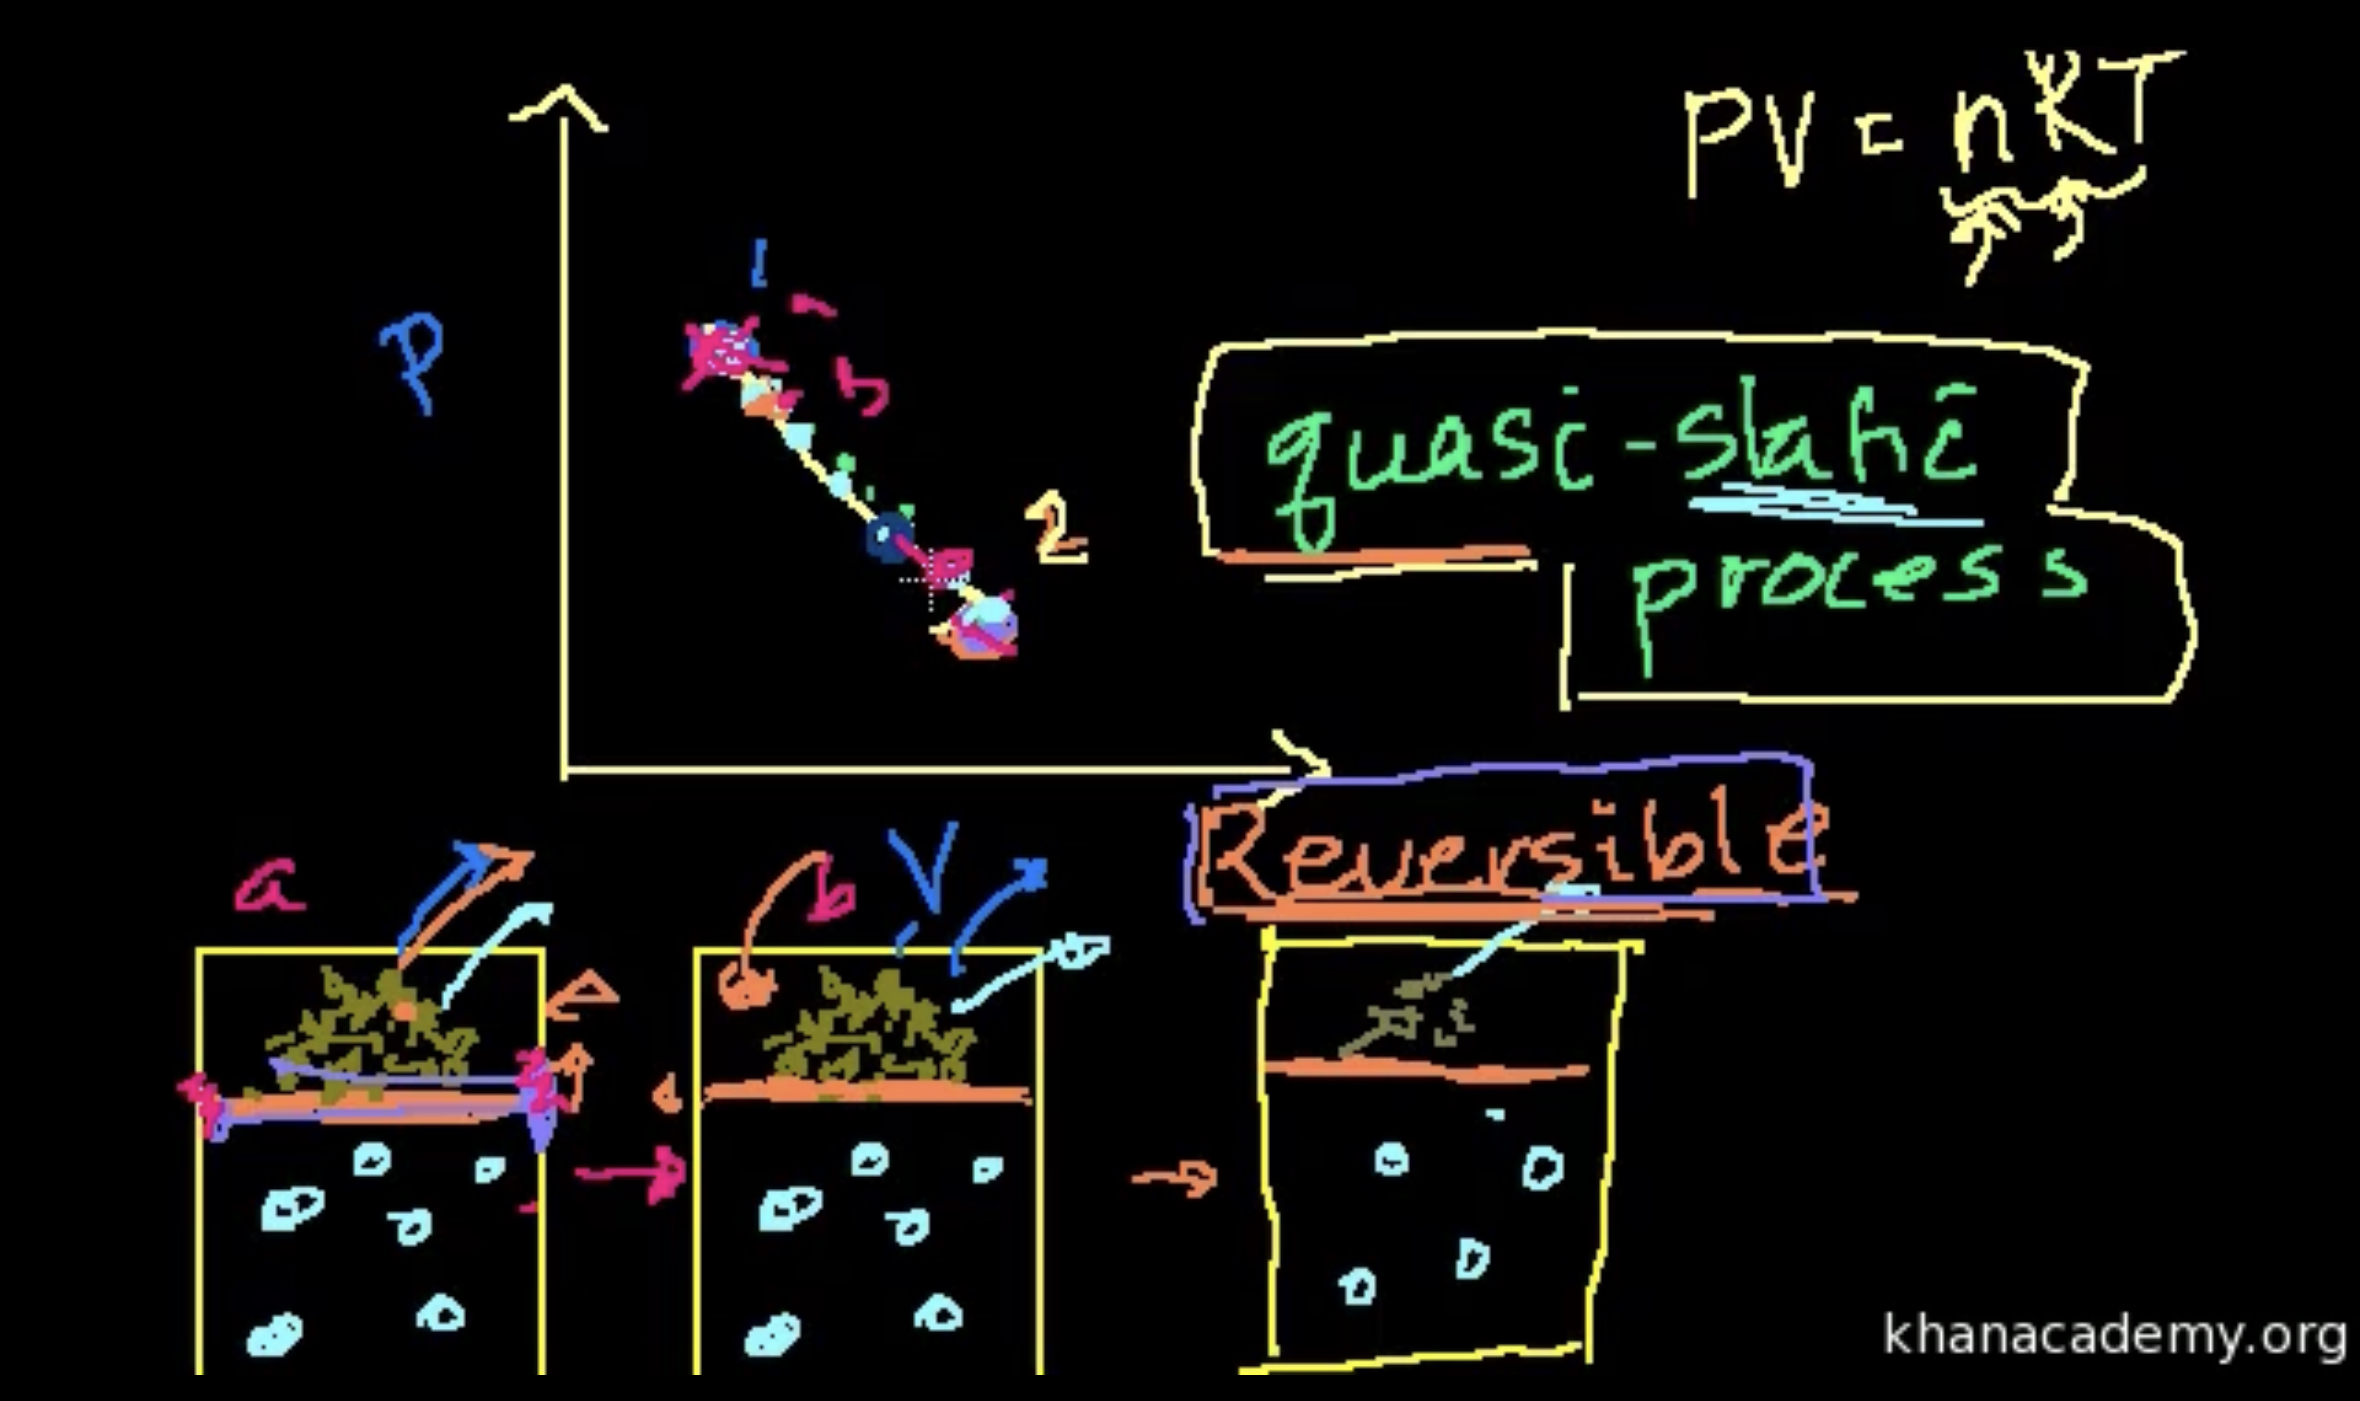 PV = nRT
1
P
b
2
quasi-static
process
Reversible
a
b
V
khanacademy.org